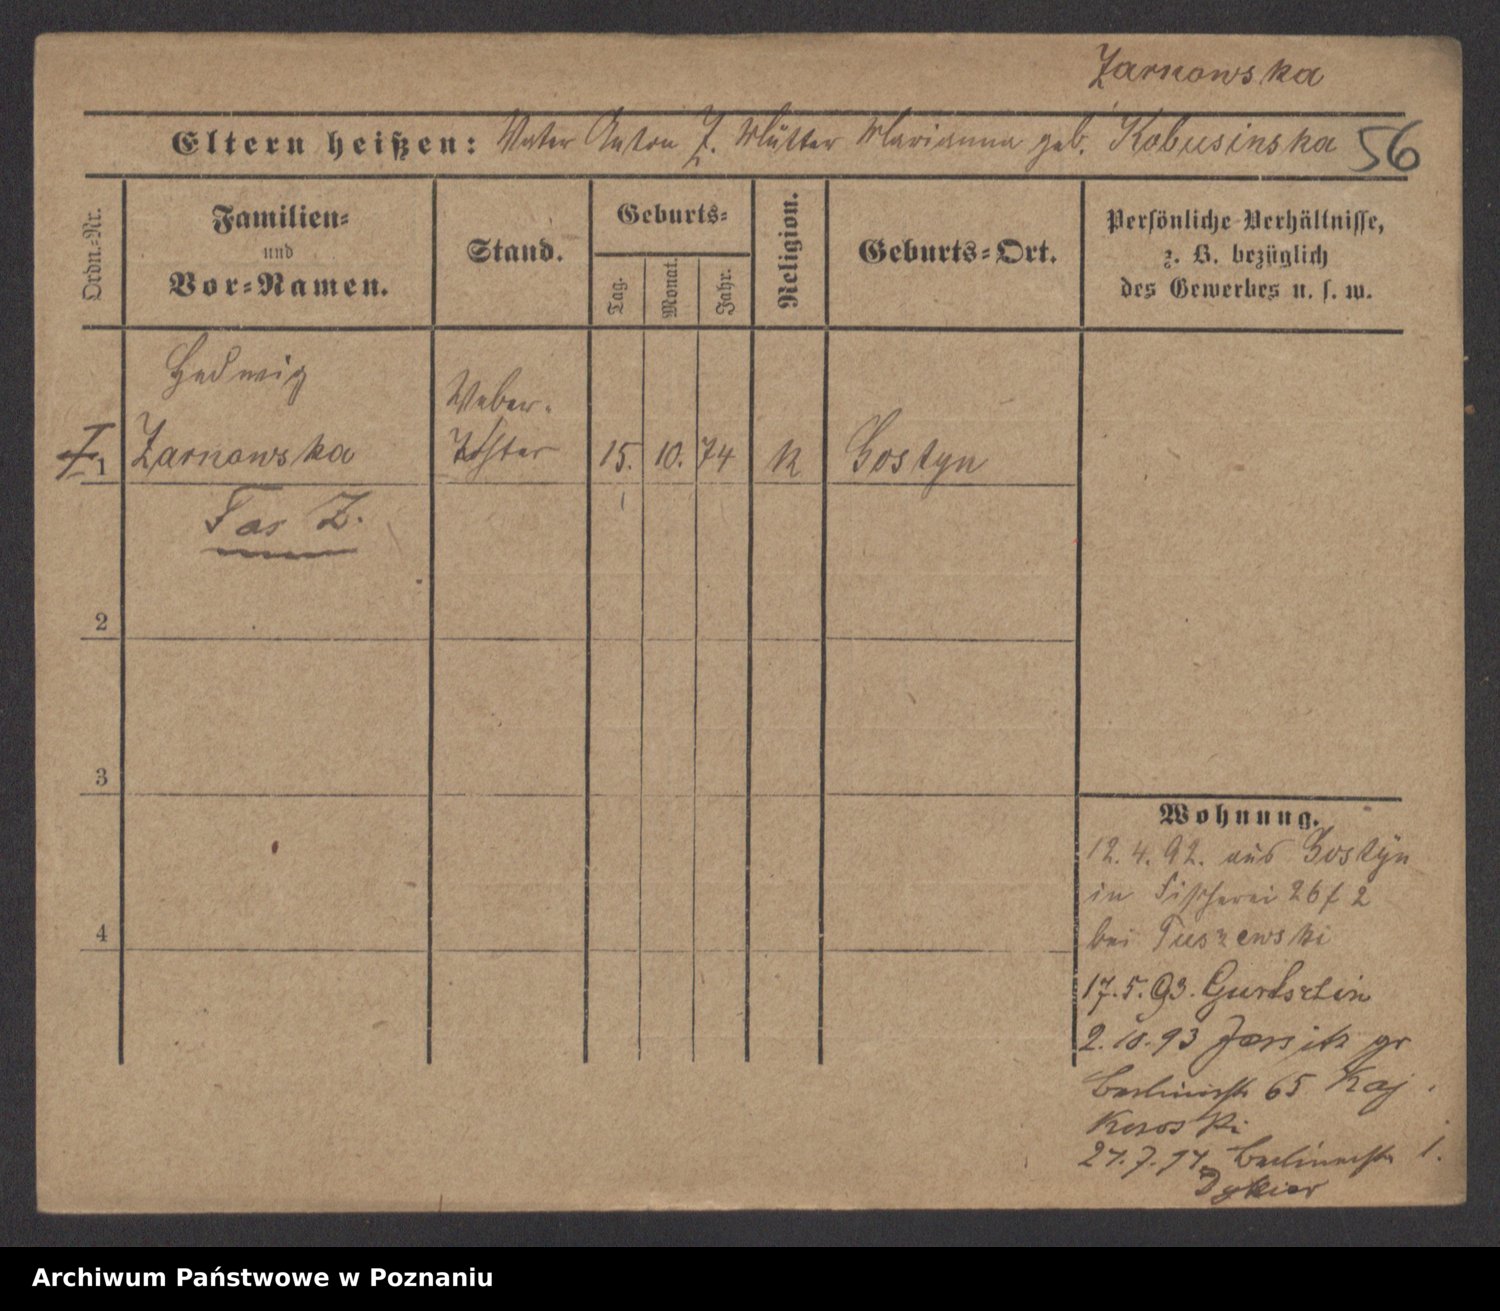 Zarnowska
Eltern heißen: Vater Anton Z. Mutter Marianna geb. Kobusinska 56
Ordn.-Nr.
Familien-
und
Vor-Namen.
Stand.
Geburts-
Tag.
Monat.
Jahr.
Religion.
Geburts-Ort.
Persönliche Verhältnisse,
z. B. bezüglich
des Gewerbes u. s. w.
Hedwig
Weber-
1 Zarnowska Tochter 15. 10. 74 K Gostyn
Z.
2
3
4
Wohnung.
12. 4. 92. aus Gostÿn
in Fischerei 26 f 2
bei Tuszewski
17. 5. 93.
2. 10. 93 Jersitz gr
Berlinerstr 65
27. 7. Berlinerstr 1.
Archiwum Państwowe w Poznaniu